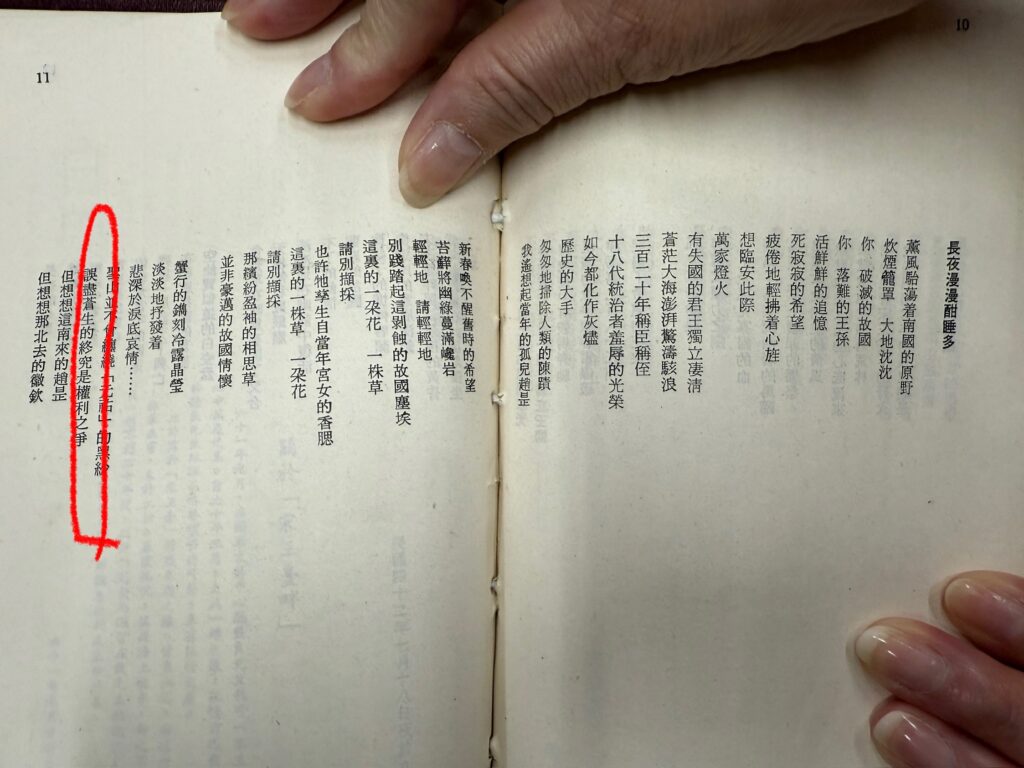 10
長夜漫漫酣睡多
薰風駘蕩着南國的原野
炊煙籠罩　大地沈沈
你　破滅的故國
你　落難的王孫
活鮮鮮的追憶
死寂寂的希望
疲倦地輕拂着心旌
想臨安此際
萬家燈火
有失國的君王獨立凄清
蒼茫大海澎湃驚濤駭浪
三百二十年稱臣稱侄
十八代統治者羞辱的光榮
如今都化作灰燼
歷史的大手
匆匆地掃除人類的陳蹟
我遙想起當年的孤兒趙昺
11
新春喚不醒舊時的希望
苔蘚將幽綠蔓滿巉岩
輕輕地　請輕輕地
別踐踏起這剝蝕的故國塵埃
這裏的一朵花　一株草
請別擷採
也許牠孳生自當年宮女的香腮
這裏的一株草　一朵花
請別擷採
那繽紛盈袖的相思草
並非豪邁的故國情懷
蟹行的鐫刻冷露晶瑩
淡淡地抒發着
悲深於淚底哀情……
聖山並不會纏繞「元祐」的黑紗
誤盡蒼生的終究是權利之爭
但想想這南來的趙昺
但想想那北去的徽欽